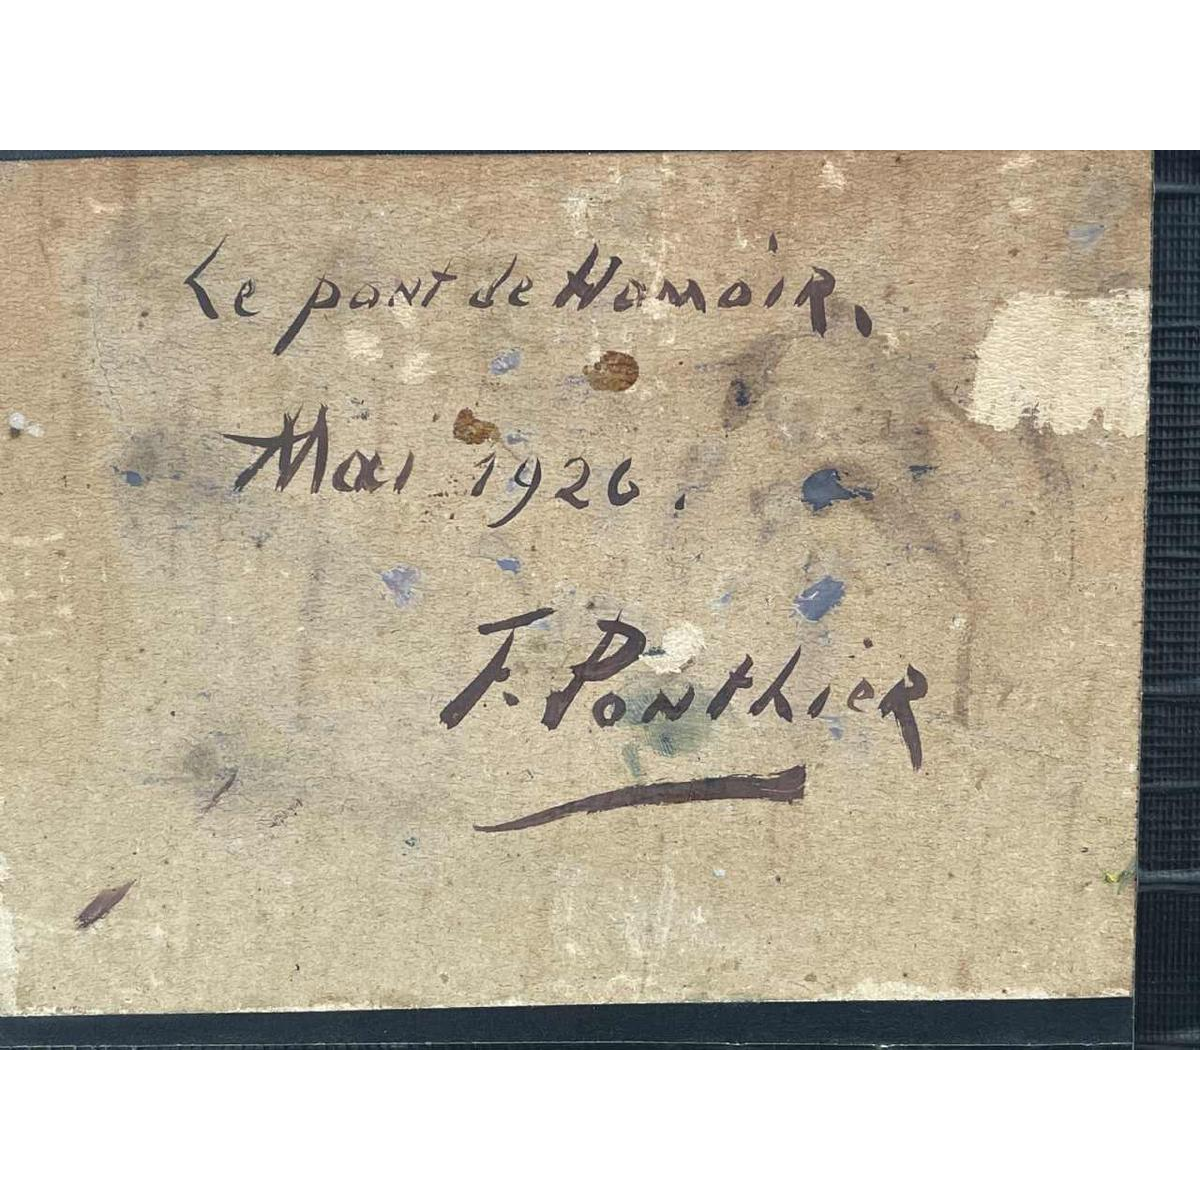 Le pont de Hamoir.
Mai 1926.
F. Ponthier